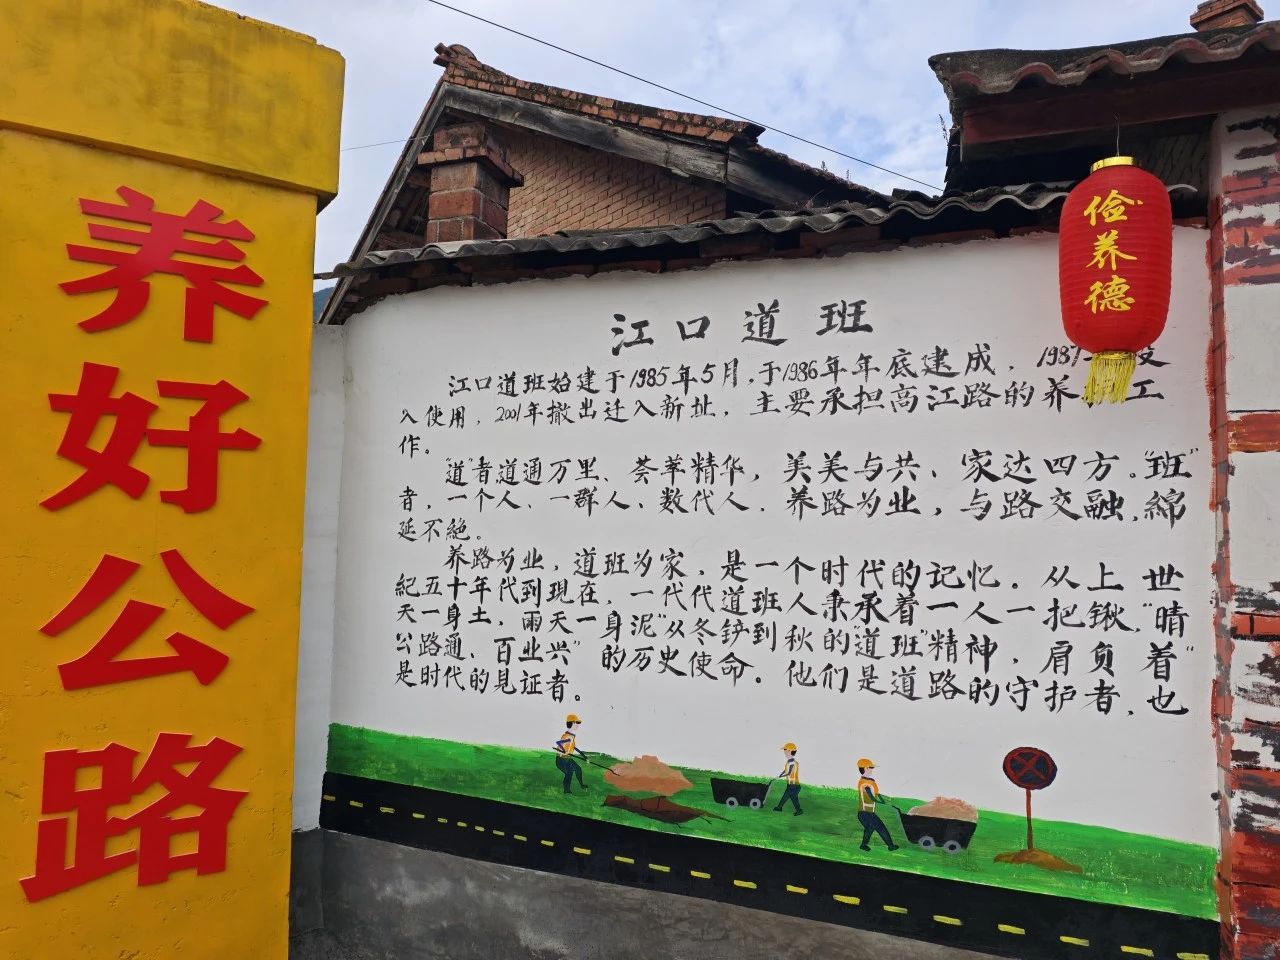 养好公路
俭养德
江口道班
江口道班始建于1985年5月,于1986年年底建成,1987
入使用,2001年撤出迁入新址,主要承担高江路的养 工
作。
"道"者道通万里、荟萃精华,美美与共、家达四方。"班"
者,一个人、一群人、数代人、养路为业,与路交融,綿
延不絶。
养路为业,道班为家,是一个时代的记忆。从上世
紀五十年代到現在,一代代道班人秉承着一人一把锹,"晴
天一身土,雨天一身泥"从冬铲到秋的道班"精神,肩负着"
公路通、百业兴"的历史使命。他们是道路的守护者,也
是时代的見证者。